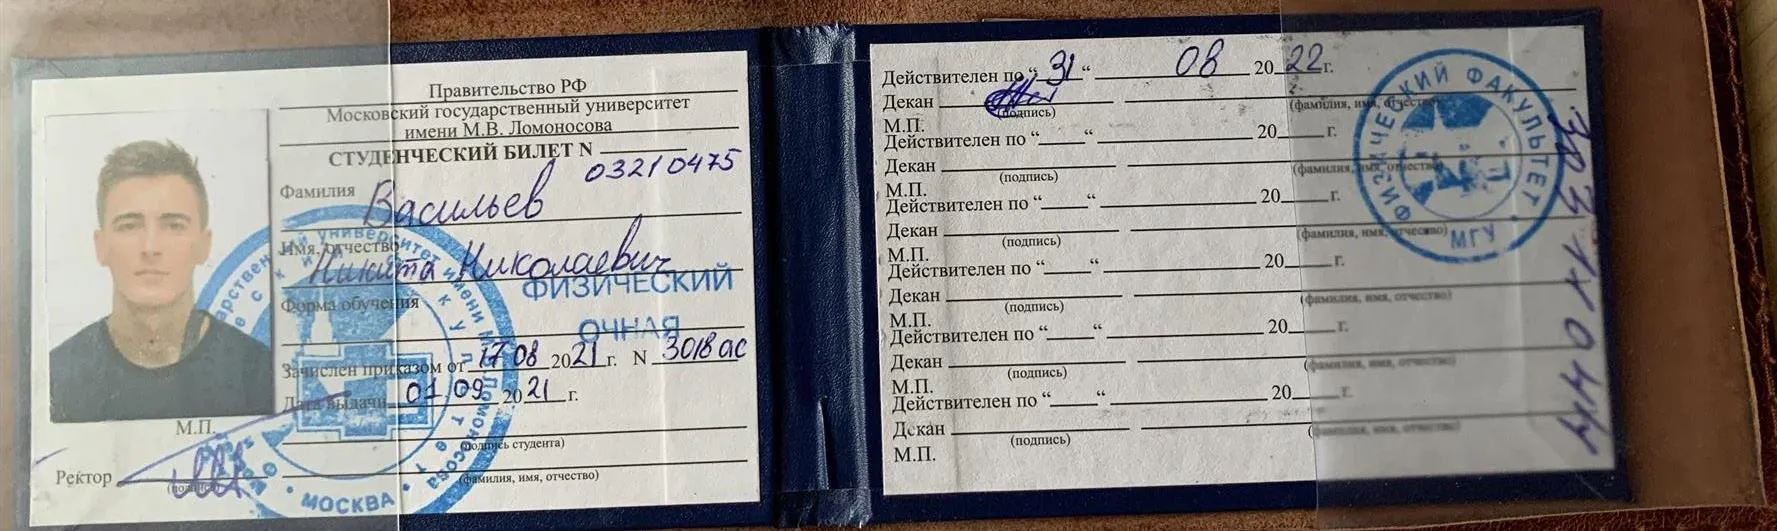 Правительство РФ
Московский государственный университет
имени М.В. Ломоносова
СТУДЕНЧЕСКИЙ БИЛЕТ N
03210475
Фамилия Васильев
Имя, отчество Никита Николаевич
ФИЗИЧЕСКИЙ
Форма обучения
ОЧНАЯ
Зачислен приказом от 17 08 2021 г. N 3018 ас
Дата выдачи 01 09 2021 г.
М.П.
(подпись студента)
Ректор
(подпись)
(фамилия, имя, отчество)
МОСКВА
Действителен по “31“ 08 2022 г.
Декан
(подпись) (фамилия, имя, отчество)
М.П.
Действителен по “ “ 20 г.
Декан
(подпись) (фамилия, имя, отчество)
М.П.
Действителен по “ “ 20 г.
Декан
(подпись) (фамилия, имя, отчество)
М.П.
Действителен по “ “ 20 г.
Декан
(подпись) (фамилия, имя, отчество)
М.П.
Действителен по “ “ 20 г.
Декан
(подпись) (фамилия, имя, отчество)
М.П.
Действителен по “ “ 20 г.
Декан
(подпись) (фамилия, имя, отчество)
М.П.
ФИЗИЧЕСКИЙ ФАКУЛЬТЕТ
МГУ